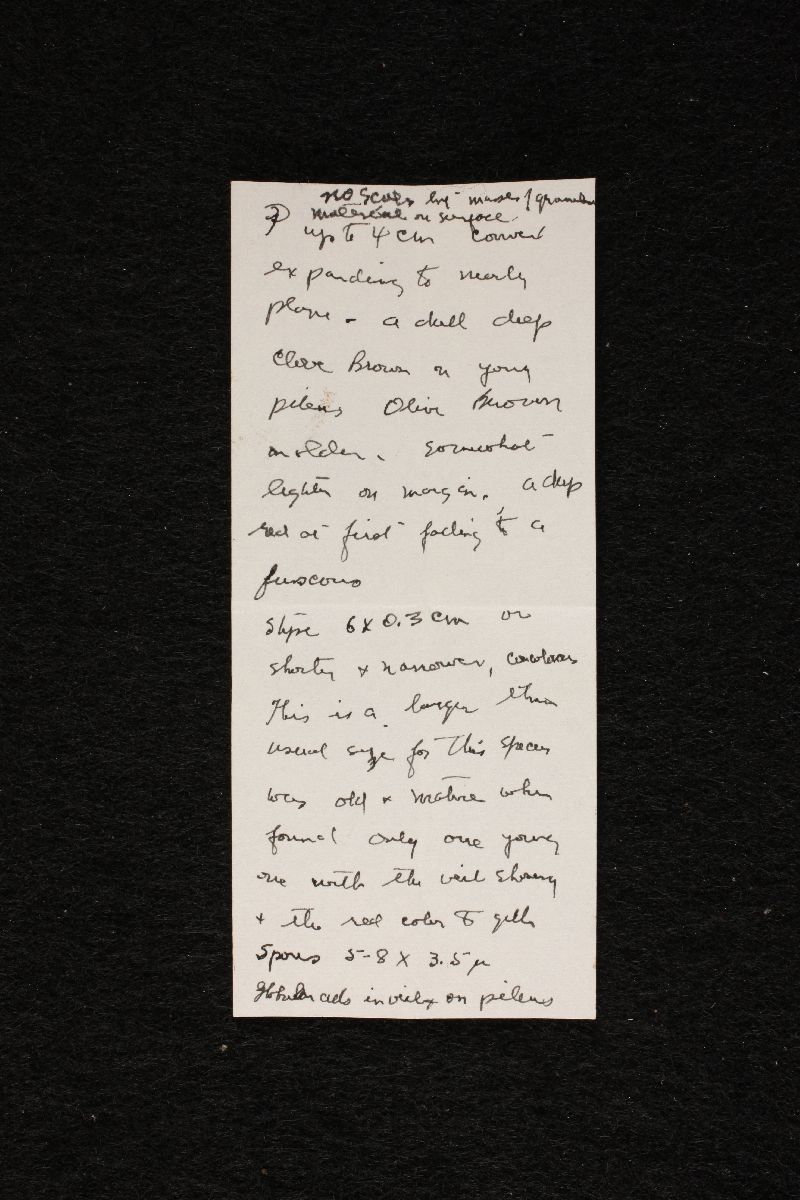 no scales but masses / granular
material on surface.
up to 4 cm convex
expanding to nearly
plane - a dull deep
Clove Brown on young
pileus Olive Brown
on older. Somewhat
lighter on margin. a deep
red at first fading to a
fuscous
Stipe 6 x 0.3 cm or
shorter & narrower, concolorous
This is a larger than
usual size for this species
was old & mature when
found only one young
one with the veil showing
& the red color to gills
Spores 5-8 X 3.5 µ
Globular cells in veil & on pileus